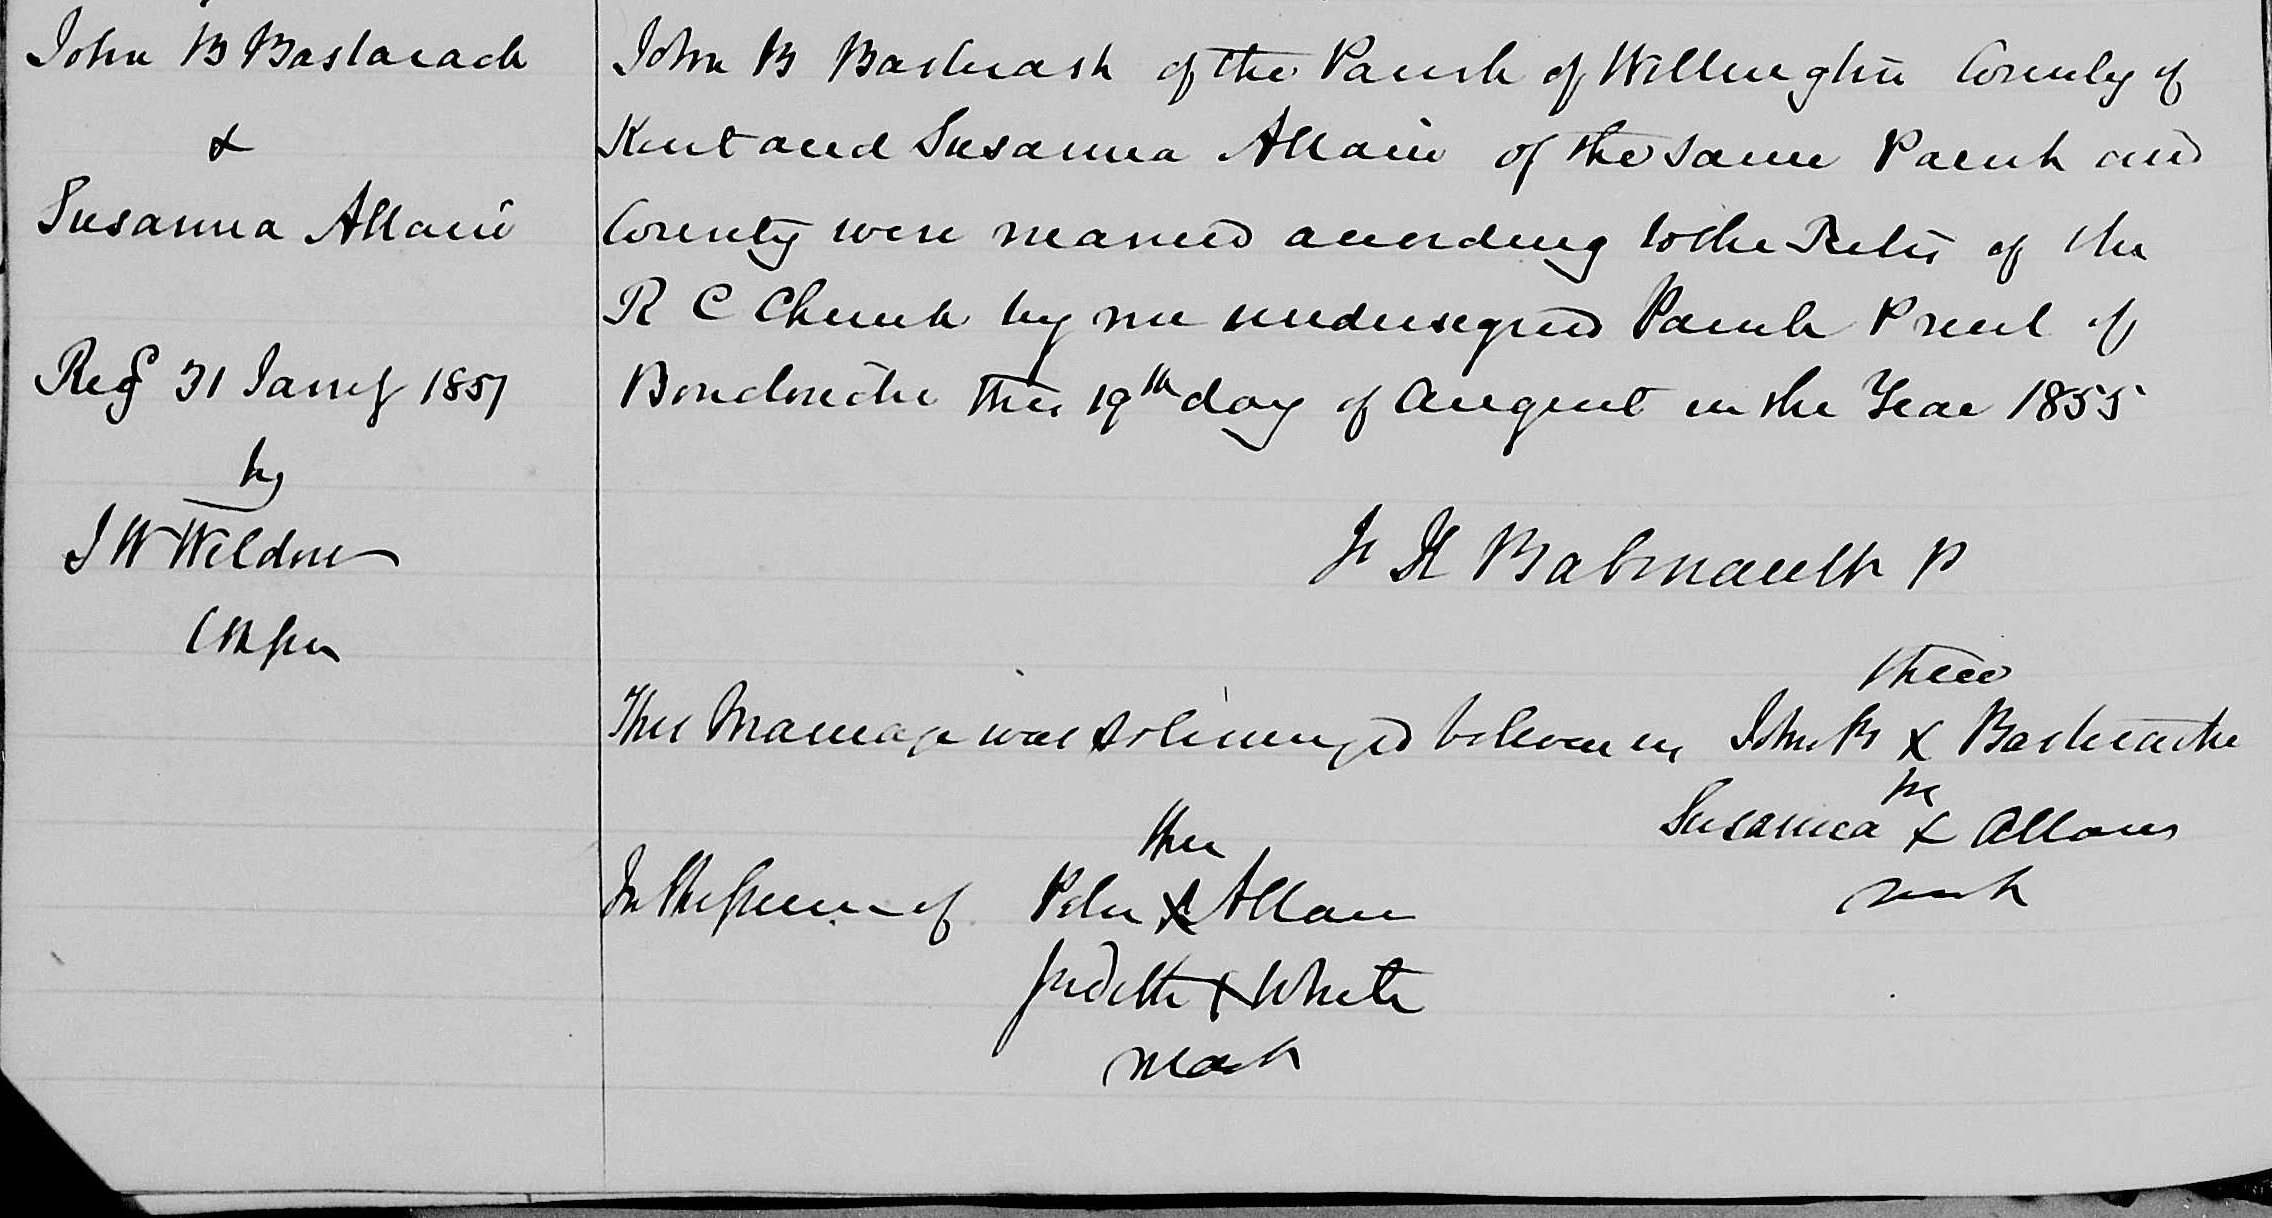 John B Bastarach
&
Susanna Allain
Regd 31 Janry 1857
by
J W Weldon
John B Bastarash of the Parish of Wellington County of
Kent and Susanna Allain of the same Parish and
County were married according to the Rites of the
R C Church by me undersigned Parish Priest of
Bouctouche this 19th day of August in the Year 1855
P
their
This Marriage was solemnized between us John B x Bastarache
Susanna x Allain
mark
their
In the presence of Peter x Allain
Judith x White
mark